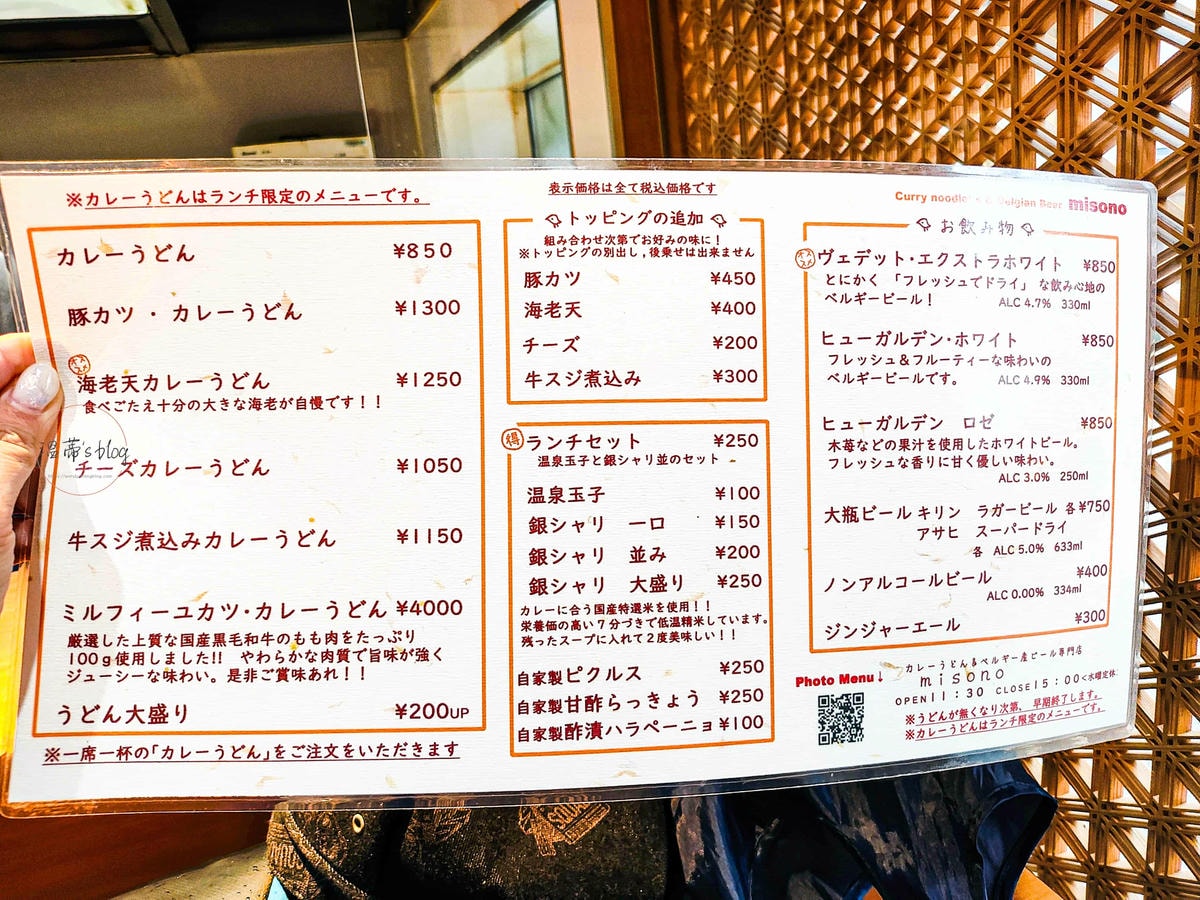 ※カレーうどんはランチ限定のメニューです。
カレーうどん ¥850
豚カツ・カレーうどん ¥1300
オススメ
海老天カレーうどん ¥1250
食べごたえ十分の大きな海老が自慢です！！
チーズカレーうどん ¥1050
牛スジ煮込みカレーうどん ¥1150
ミルフィーユカツ・カレーうどん ¥4000
厳選した上質な国産黒毛和牛のもも肉をたっぷり
100g使用しました!! やわらかな肉質で旨味が強く
ジューシーな味わい。是非ご賞味あれ！！
うどん大盛り ¥200UP
※一席一杯の「カレーうどん」をご注文をいただきます
表示価格は全て税込価格です
トッピングの追加
組み合わせ次第でお好みの味に！
※トッピングの別出し，後乗せは出来ません
豚カツ ¥450
海老天 ¥400
チーズ ¥200
牛スジ煮込み ¥300
得 ランチセット ¥250
温泉玉子と銀シャリ並のセット
温泉玉子 ¥100
銀シャリ 一口 ¥150
銀シャリ 並み ¥200
銀シャリ 大盛り ¥250
カレーに合う国産特選米を使用！！
栄養価の高い７分づきで低温精米しています。
残ったスープに入れて２度美味しい！！
自家製ピクルス ¥250
自家製甘酢らっきょう ¥250
自家製酢漬ハラペーニョ ¥100
Curry noodle Belgian Beer misono
お飲み物
オススメ
ヴェデット・エクストラホワイト ¥850
とにかく 「フレッシュでドライ」 な飲み心地の
ベルギービール！ ALC 4.7% 330ml
ヒューガルデン・ホワイト ¥850
フレッシュ＆フルーティーな味わいの
ベルギービールです。 ALC 4.9% 330ml
ヒューガルデン ロゼ ¥850
木苺などの果汁を使用したホワイトビール。
フレッシュな香りに甘く優しい味わい。
ALC 3.0% 250ml
大瓶ビール キリン ラガービール 各¥750
アサヒ スーパードライ
各 ALC 5.0% 633ml
ノンアルコールビール ¥400
ALC 0.00% 334ml
ジンジャーエール ¥300
Photo Menu↓
カレーうどん&ベルギー産ビール専門店
misono
OPEN11：30 CLOSE15：00<水曜定休
※うどんが無くなり次第、早期終了します。
※カレーうどんはランチ限定のメニューです。
蒂's blog